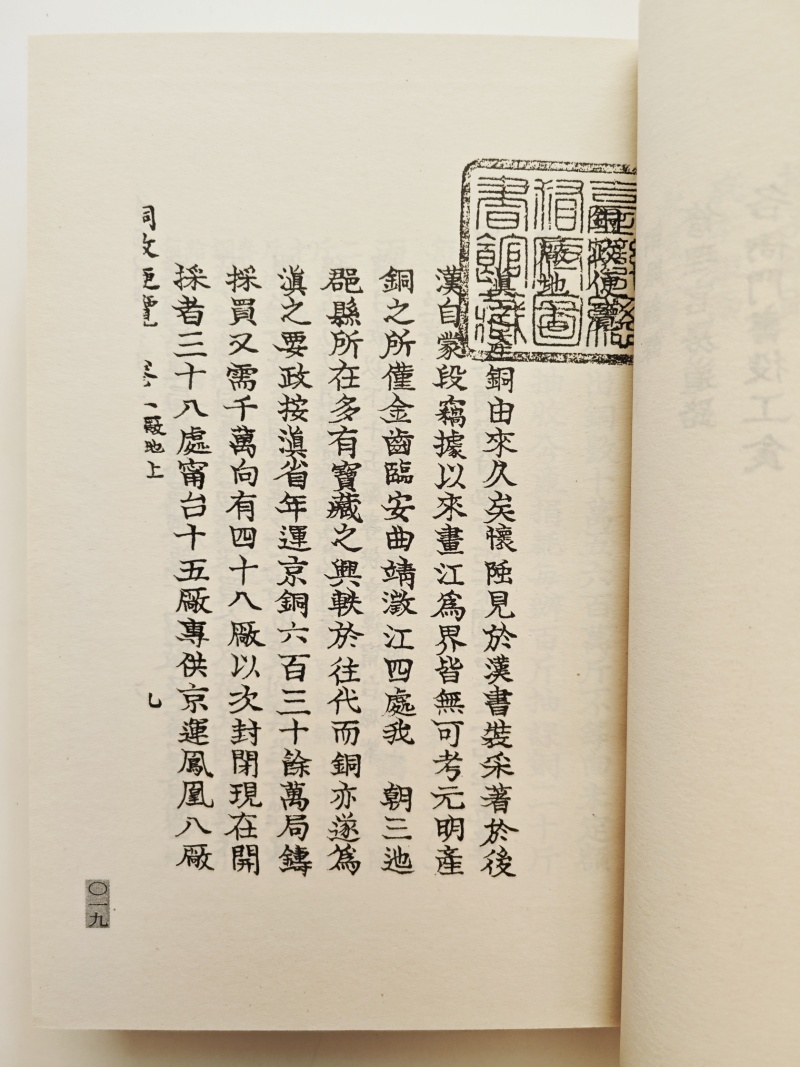 銅政便覽
廠地
滇產銅由來久矣懷陸見於漢書裝采著於後
漢自蒙段竊據以來畫江爲界皆無可考元明產
銅之所僅金齒臨安曲靖澂江四處我　朝三迤
郡縣所在多有寶藏之興軼於往代而銅亦遂爲
滇之要政按滇省年運京銅六百三十餘萬局鑄
採買又需千萬向有四十八厰以次封閉現在開
採者三十八處甯台十五厰專供京運鳳凰八厰
銅政便覽　卷一厰地上
〇一九